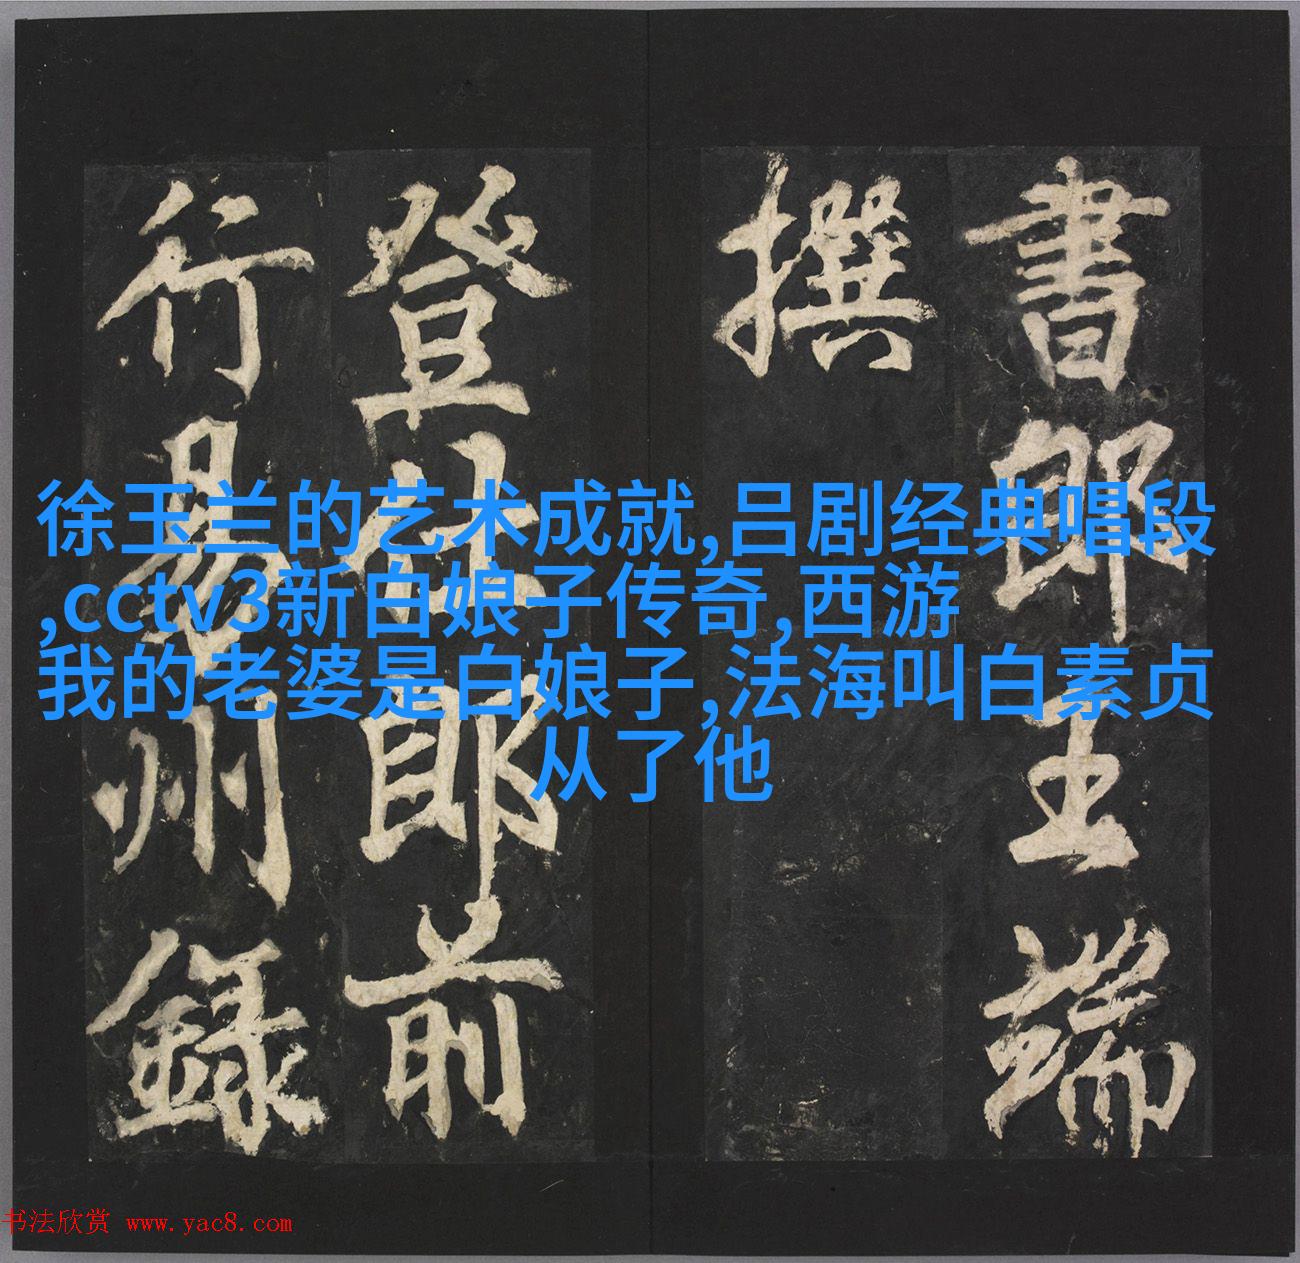 書郎王端
撰
登仕郎前
行易州錄
徐玉兰的艺术成就,吕剧经典唱段
,cctv3新白娘子传奇,西游
我的老婆是白娘子,法海叫白素贞
从了他
书法欣赏 www.yac8.com